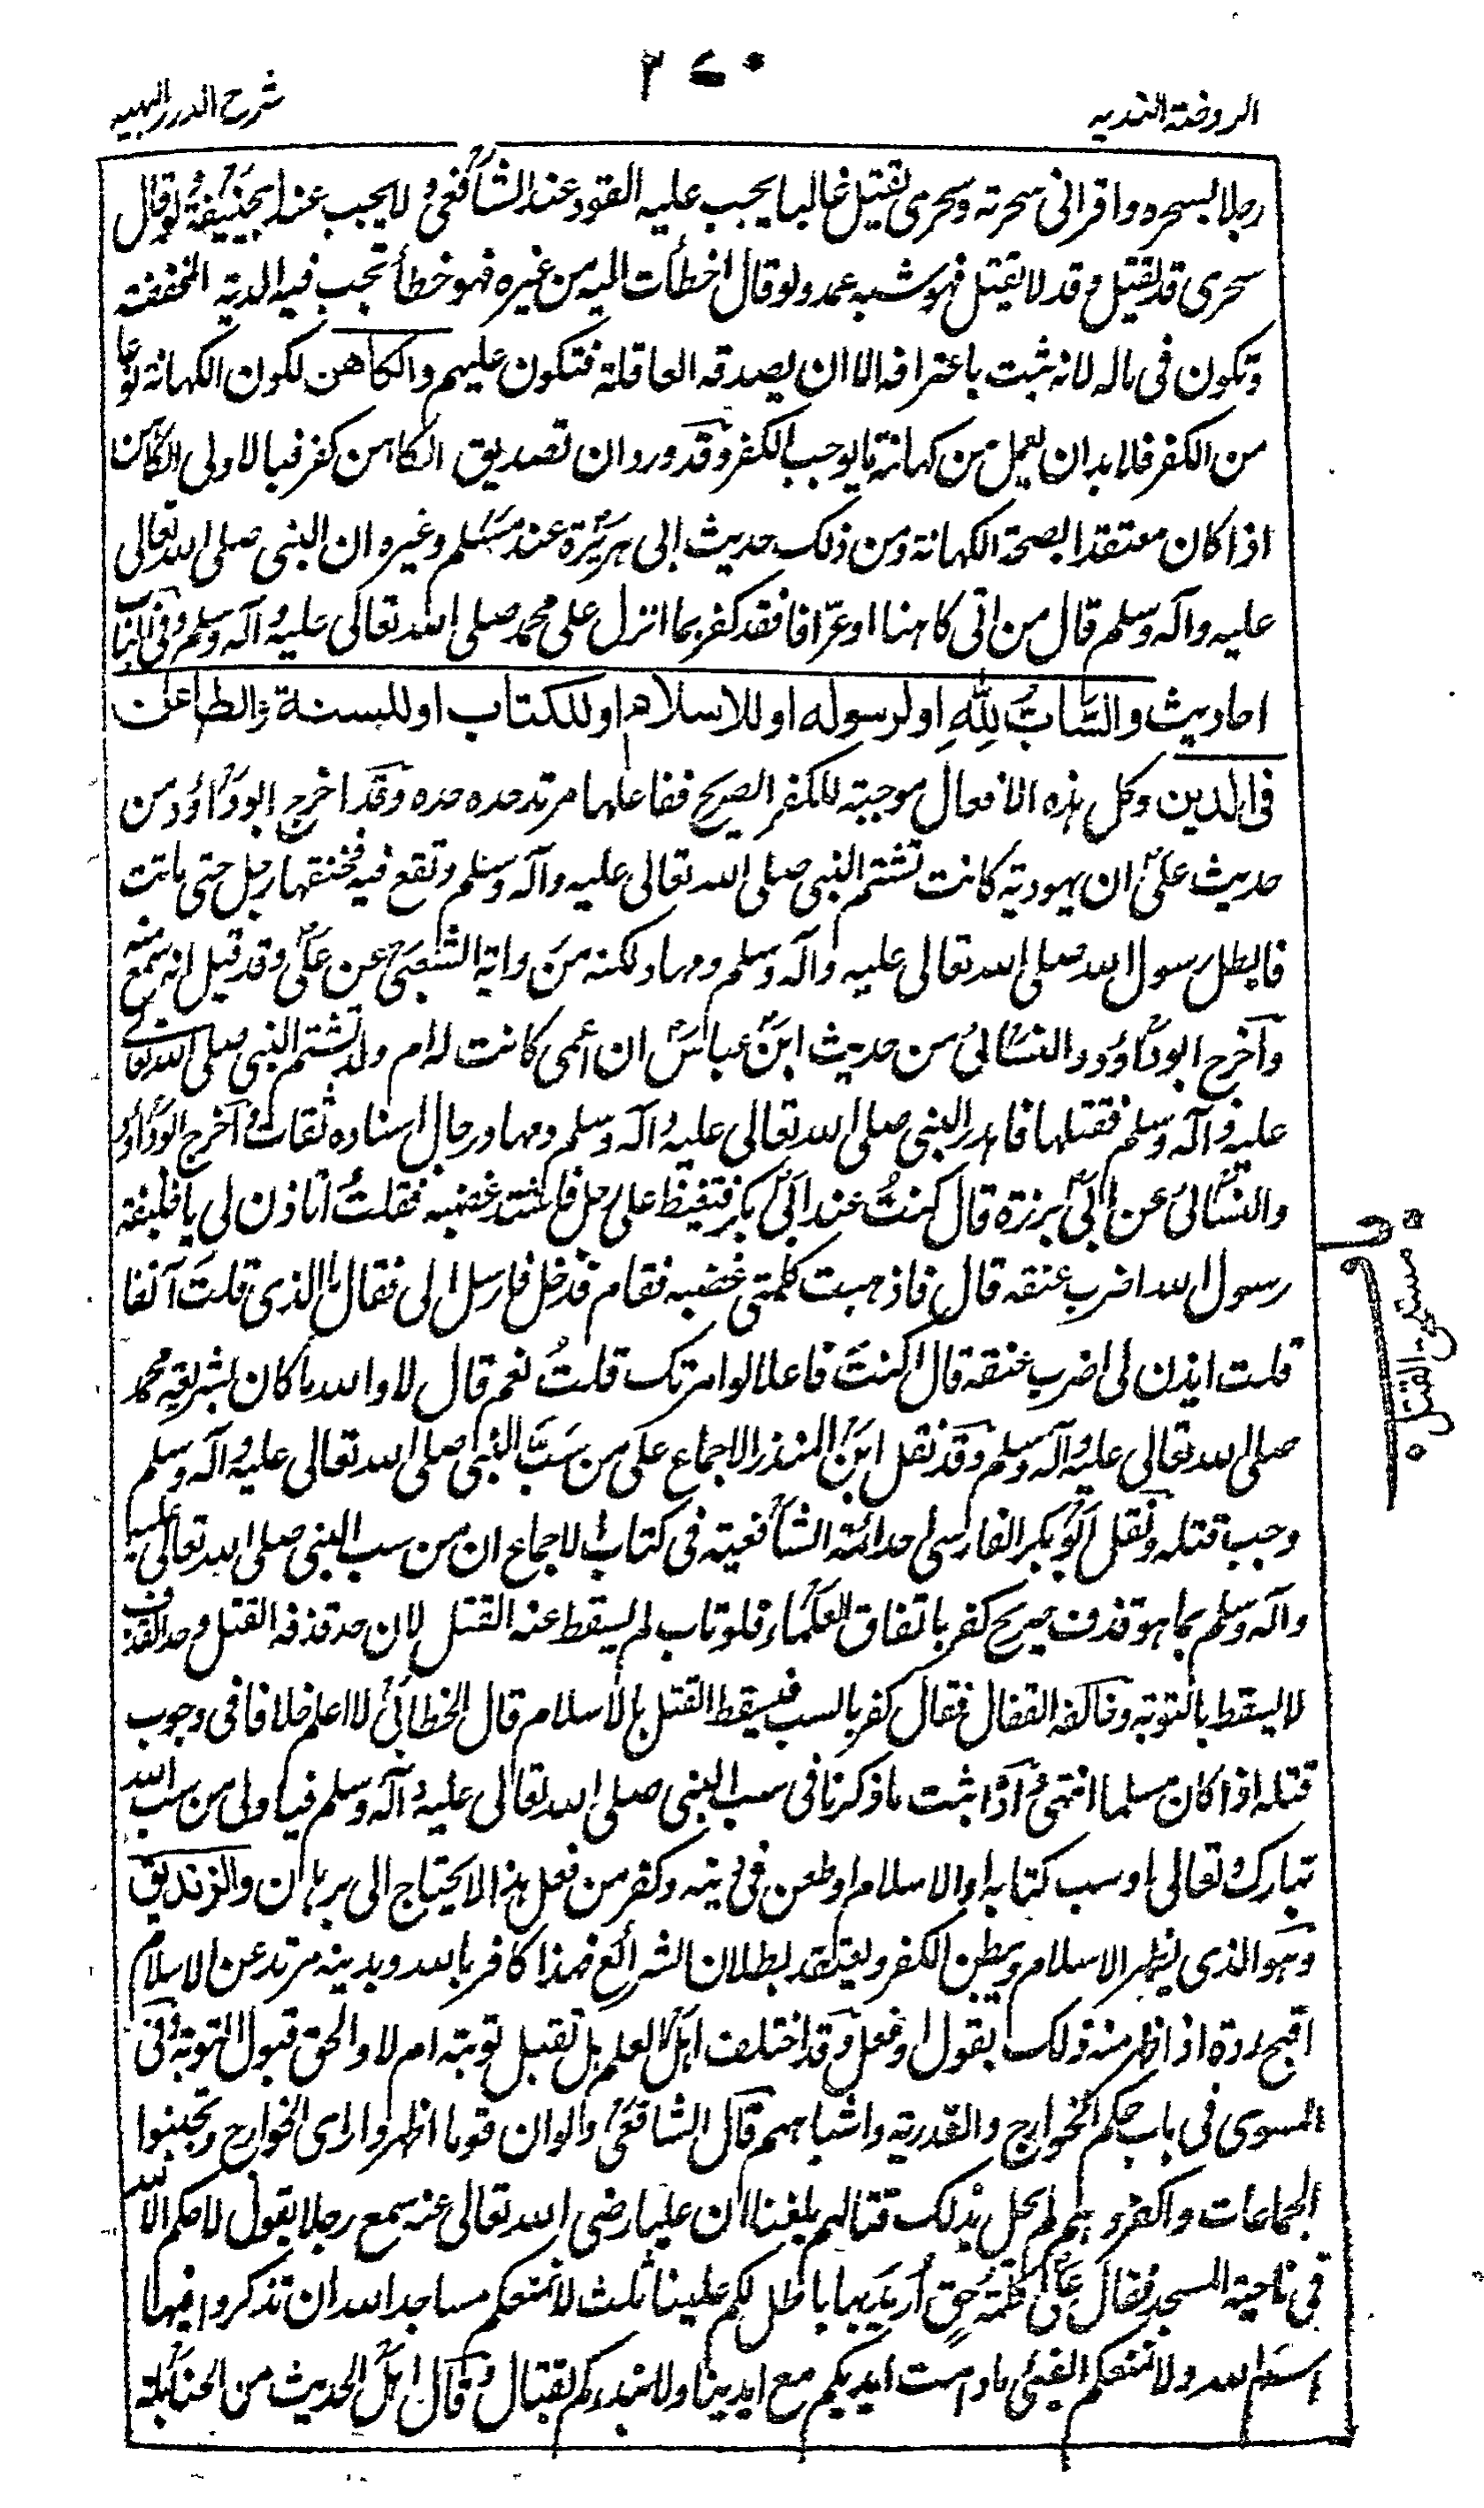 ٣٤٠
الروضة الندیه
شرح الدرر البهیه
رجلا بسحره واقر انی سحرته وسحری یقتل غالبا یجب علیه القود عند الشافعی ولا یجب عند ابیحنیفة ولو قال
سحری قد یقتل وقد لا یقتل فهو شبه عمد ولو قال اخطأت الیه من غیره فهو خطأ تجب فیه الدیة المخففة
وتکون فی ماله لانه ثبت باعترافه الا ان یصدقه العاقلة فتکون علیهم والکاهن لکون الکهانة نوعا
من الکفر فلا بد ان یعمل من کهانته ما یوجب الکفر وقد ورد ان تصدیق الکاهن کفر فبالاولی الکاهن
اذا کان معتقدا بصحة الکهانة ومن ذلک حدیث ابی هریرة عند مسلم وغیره ان النبی صلی الله تعالی
علیه وآله وسلم قال من اتی کاهنا او عرّافا فقد کفر بما انزل علی محمد صلی الله تعالی علیه وآله وسلم وفی الباب
احادیث والسّابُّ لِلّٰهِ او لرسوله او للاسلام او للکتاب او للسنة والطاعن
فی الدین وکل هذه الافعال موجبة للکفر الصریح ففاعلها مرتد حده حده وقد اخرج ابوداؤد من
حدیث علی ان یهودیة کانت تشتم النبی صلی الله تعالی علیه وآله وسلم وتقع فیه فخنقها رجل حتی ماتت
فابطل رسول الله صلی الله تعالی علیه وآله وسلم دمها ولکنه من روایة الشعبی عن علی وقد قیل انه سمع منه
واخرج ابوداؤد والنسائی من حدیث ابن عباس ان اعمی کانت له ام ولد تشتم النبی صلی الله تعالی
علیه وآله وسلم فقتلها فاهدر النبی صلی الله تعالی علیه وآله وسلم دمها ورجال اسناده ثقات واخرج ابوداؤد
والنسائی عن ابی برزة قال کنتُ عند ابی بکر فتغیظ علی رجل فاشتد غضبه فقلتُ اتاذن لی یا خلیفة
رسول الله اضرب عنقه قال فاذهبت کلمتی غضبه فقام فدخل فارسل الی فقال ما الذی قلتَ آنفا
قلت ایذن لی اضرب عنقه قال اکنتَ فاعلا لو امرتک قلتُ نعم قال لا والله ما کان لبشر بعد محمد
صلی الله تعالی علیه وآله وسلم وقد نقل ابن المنذر الاجماع علی من سَبَّ النبی صلی الله تعالی علیه وآله وسلم
وجب قتله ونقل ابو بکر الفارسی احد ائمة الشافعیة فی کتاب الاجماع ان من سب النبی صلی الله تعالی علیه
وآله وسلم بما هو قذف صریح کفر باتفاق العلماء فلو تاب لم یسقط عنه القتل لان حد قذفه القتل وحد القذف
لا یسقط بالتوبة وخالفه القفال فقال کفر بالسب فیسقط القتل بالاسلام قال الخطابی لا اعلم خلافا فی وجوب
قتله اذا کان مسلما انتهی واذا ثبت ما ذکرنا فی سب النبی صلی الله تعالی علیه وآله وسلم فبالاولی من سب الله
تبارک وتعالی او سب کتابه او الاسلام او طعن فی دینه وکفر من فعل هذا لا یحتاج الی برهان والزندیق
وهو الذی یظهر الاسلام ویبطن الکفر ویعتقد بطلان الشرائع فهذا کافر بالله وبدینه مرتد عن الاسلام
اقبح ردة اذا ظهر منه ذلک بقول او فعل وقد اختلف اهل العلم هل تقبل توبته ام لا والحق قبول التوبة وفی
المسوی فی باب حکم الخوارج والقدریة واشباههم قال الشافعی ولو ان قوما اظهروا رای الخوارج وتجنبوا
الجماعات واکفروهم لم یحل بذلک قتالهم بلغنا ان علیا رضی الله تعالی عنه سمع رجلا یقول لا حکم الا لله
فی ناحیة المسجد فقال علی کلمةُ حقٍ اُرید بها باطل لکم علینا ثلث لا نمنعکم مساجد الله ان تذکروا فیها
اسم الله ولا نمنعکم الفیٔ ما دامت ایدیکم مع ایدینا ولا نبدءکم بقتال وقال اهل الحدیث من الحنابلة